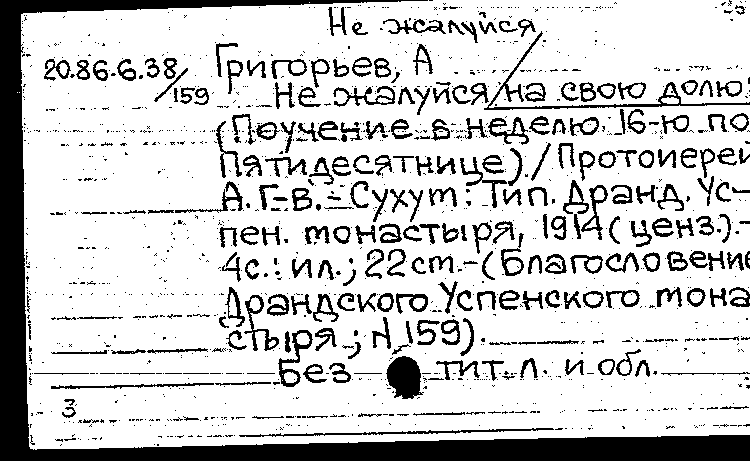 Не жалуйся
20.86-6.38/159
Григорьев, А
Не жалуйся/на свою долю!
(Поучение в неделю 16-ю по
Пятидесятнице)./Протоиерей
А. Г-в.-Сухум: Тип. Дранд. Ус-
пен. монастыря, 1914(ценз.).-
4с.: ил.; 22см.-(Благословение
Драндского Успенского мона
стыря; N 159).
Без тит. л. и обл.
3